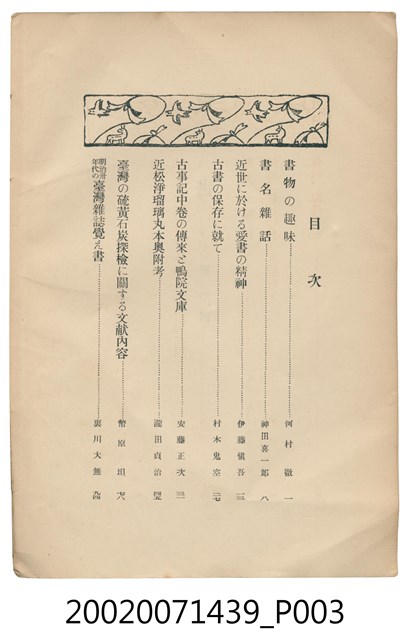 目次
書物の趣味……河村徹 一
書名雜話……神田喜一郎 八
近世に於ける愛書の精神……伊藤愼吾
古書の保存に就て……村木鬼空
古事記中卷の傳來と鴨院文庫……安藤正次
近松淨瑠璃丸本奥附考……瀧田貞治
臺灣の硫黃石炭探檢に關する文献內容……幣原坦
明治卅年代の臺灣雜誌覺え書……裏川大無
20020071439_P003